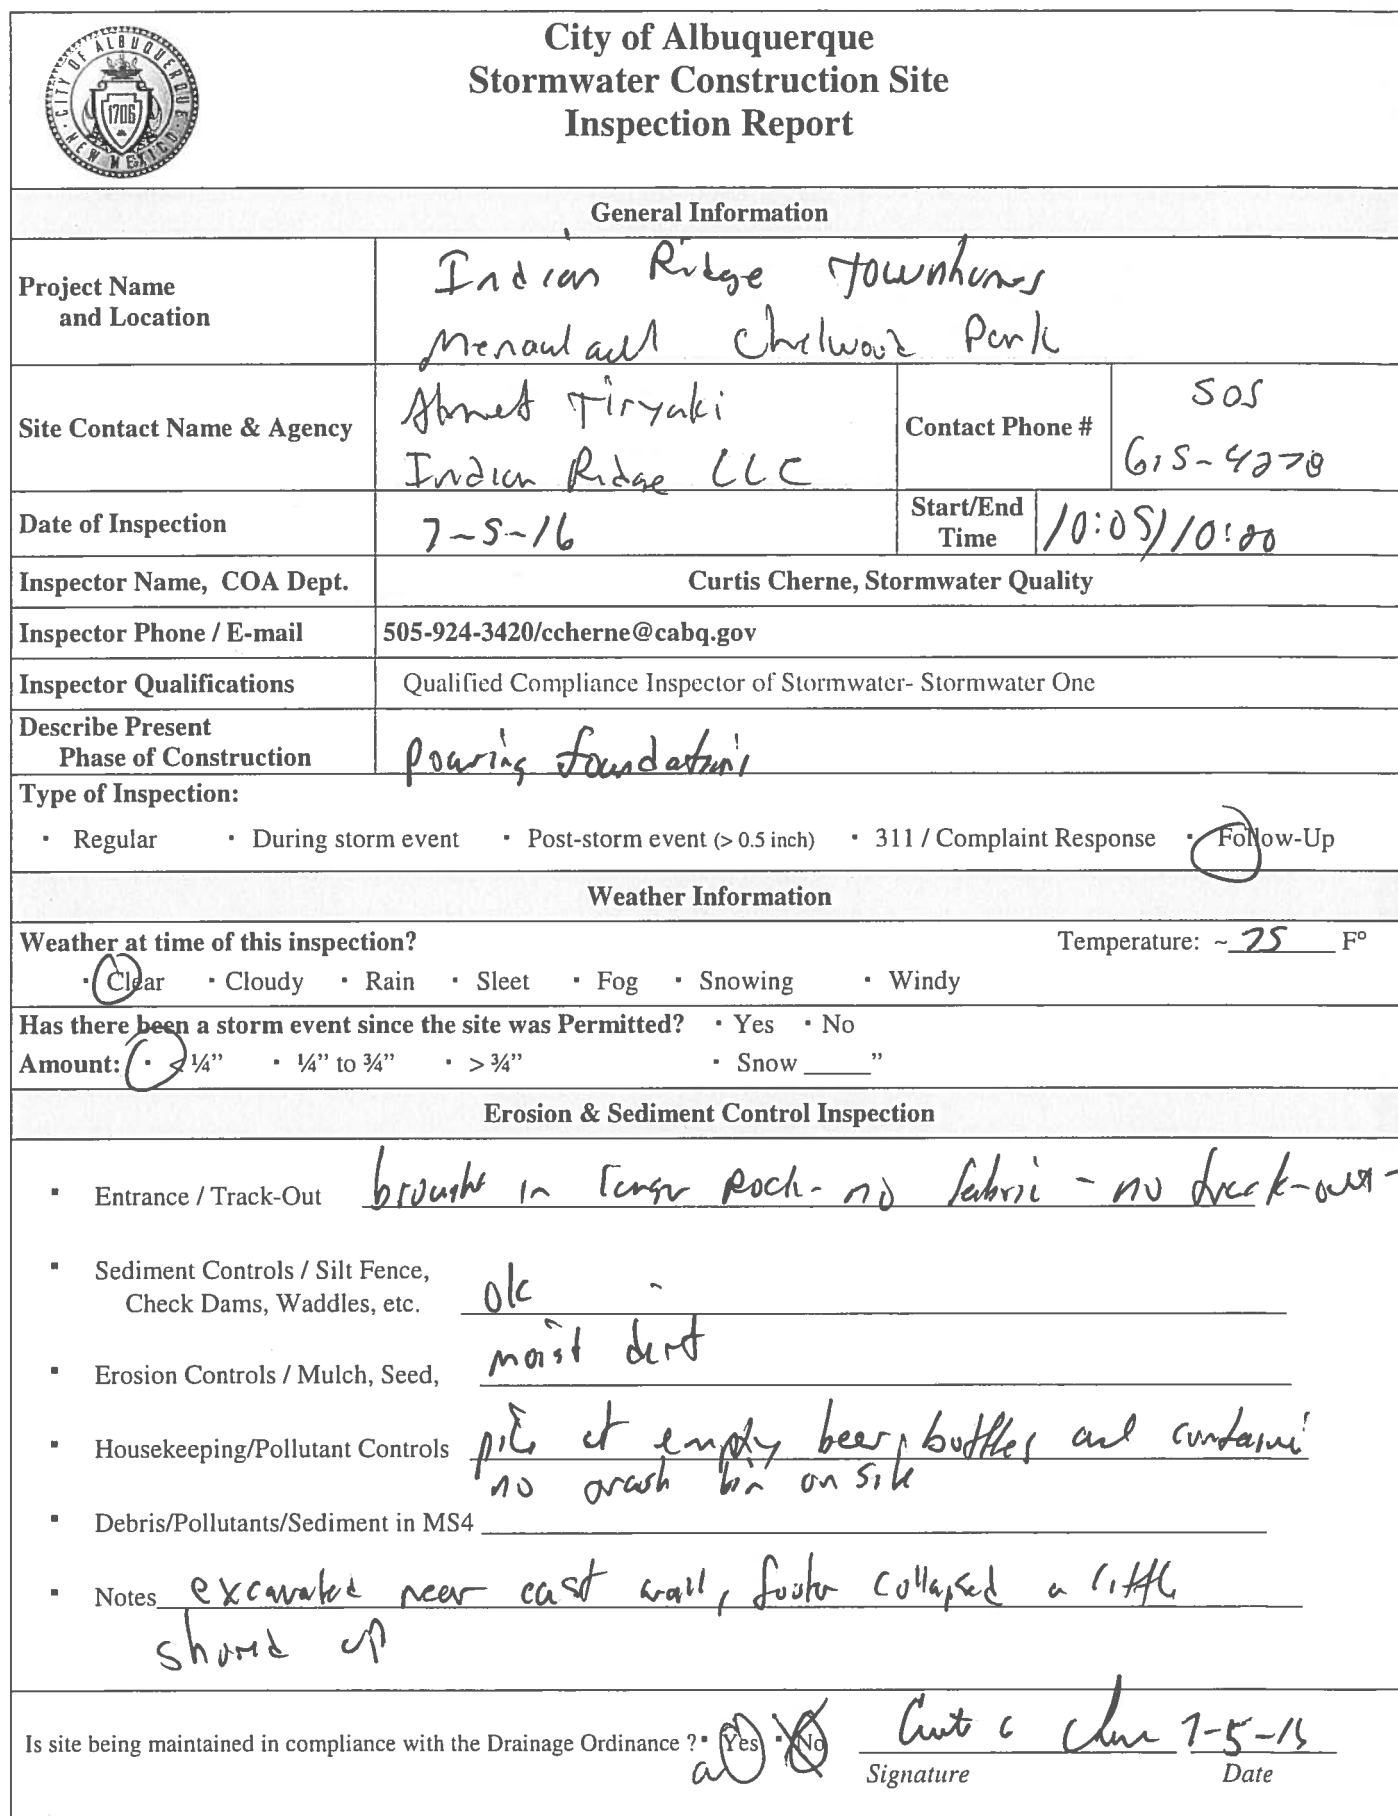 CITY OF ALBUQUERQUE · NEW MEXICO
1706
City of Albuquerque
Stormwater Construction Site
Inspection Report
General Information
Project Name
and Location
Indian Ridge Townhomes
Menaul and Chelwood Park
Site Contact Name & Agency
Ahmet Tiryaki
Indian Ridge LLC
Contact Phone #
505
615-4278
Date of Inspection
7-5-16
Start/End
Time
10:05/10:20
Inspector Name, COA Dept.
Curtis Cherne, Stormwater Quality
Inspector Phone / E-mail
505-924-3420/ccherne@cabq.gov
Inspector Qualifications
Qualified Compliance Inspector of Stormwater- Stormwater One
Describe Present
Phase of Construction
pouring foundations
Type of Inspection:
· Regular · During storm event · Post-storm event (> 0.5 inch) · 311 / Complaint Response · Follow-Up
Weather Information
Weather at time of this inspection? Temperature: ~ 75 F°
· Clear · Cloudy · Rain · Sleet · Fog · Snowing · Windy
Has there been a storm event since the site was Permitted? · Yes · No
Amount: · < ¼” · ¼” to ¾” · > ¾” · Snow _____”
Erosion & Sediment Control Inspection
▪ Entrance / Track-Out brought in larger Rock- no fabric - no track-out-
▪ Sediment Controls / Silt Fence,
Check Dams, Waddles, etc. ok
▪ Erosion Controls / Mulch, Seed, moist dirt
▪ Housekeeping/Pollutant Controls pile of empty beer bottles and
no trash bin on site
▪ Debris/Pollutants/Sediment in MS4
▪ Notes excavated near east wall, footer collapsed a little
shored up
Is site being maintained in compliance with the Drainage Ordinance ? · Yes · No
7-5-16
Signature Date